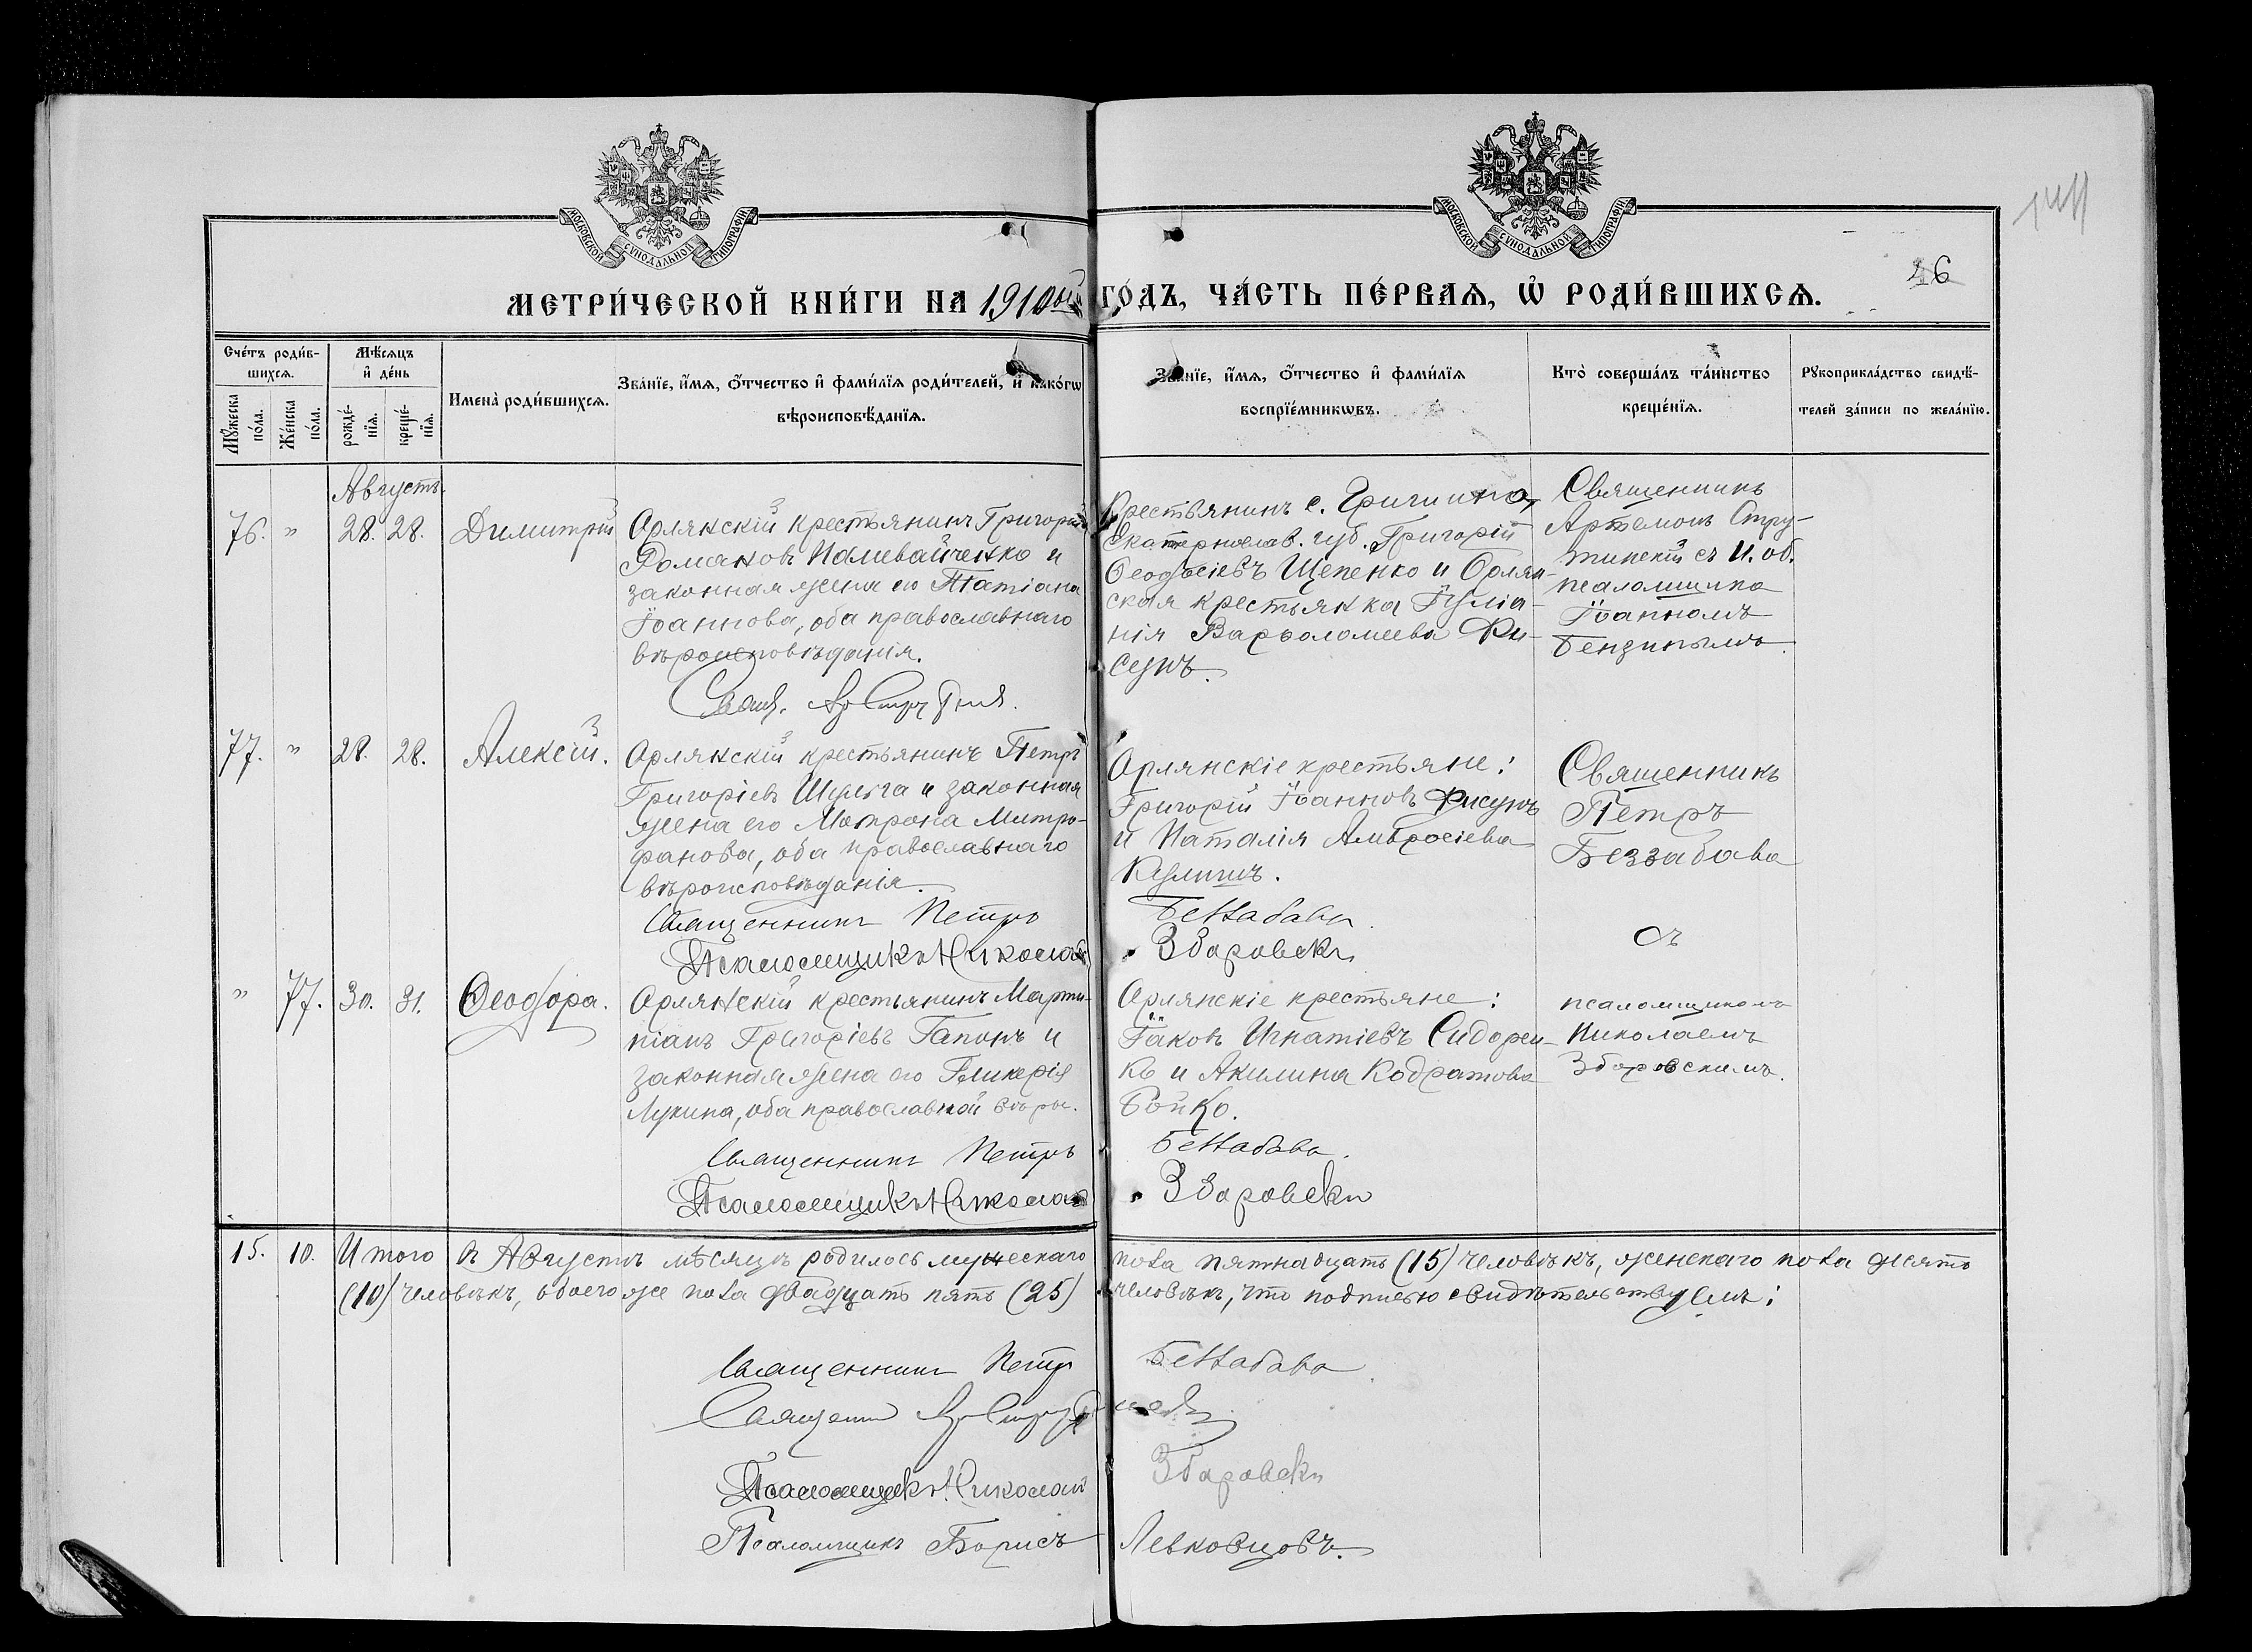 МОСКОВСКОЙ СѴНОДАЛЬНОЙ ТИПОГРАФІИ
МОСКОВСКОЙ СѴНОДАЛЬНОЙ ТИПОГРАФІИ
46
МЕТРИ́ЧЕСКОЙ КНИ́ГИ НА 1910ый ГО́ДЪ, ЧА́СТЬ ПЕ́РВАѦ, Ѡ҆ РОДИ́ВШИХСѦ.
Сче́тъ роди́в-
шихсѧ.
Мꙋ́жеска по́ла.
Же́нска по́ла.
Мѣ́сѧцъ
и҆ де́нь
рожде́-
нїѧ.
креще́-
нїѧ.
Имена̀ роди́вшихсѧ.
Зва́нїе, и҆́мѧ, ѻ҆́тчество и҆ фами́лїѧ роди́телей, и҆ како́гѡ
вѣроисповѣ́данїѧ.
Зва́нїе, и҆́мѧ, ѻ҆́тчество и҆ фами́лїѧ
воспрїе́мникѡвъ.
Кто̀ соверша́лъ та́инство
креще́нїѧ.
Рꙋкоприкла́дство свидѣ́-
телей за́писи по жела́нїю.
Августъ.
76. " 28. 28. Димитрій
Орлянскій крестьянинъ Григорій
Романовъ Наливайченко и
законная жена его Татіана
Іоаннова, оба православнаго
вѣроисповѣданія.
Свящ.
Крестьянинъ с. Гришина,
Екатериносав. губ. Григорій
Феодосіевъ Щепенко и Орлян-
ская крестьянка Іуліа-
нія Варѳоломеева Фи-
сунъ.
Священникъ
Артемонъ Стру-
тинскій съ И. об.
псаломщика
Іоанномъ
Бензинымъ.
77. " 28. 28. Алексій.
Орлянскій крестьянинъ Петръ
Григоріевъ Шульга и законная
жена его Матрона Митро-
фанова, оба православнаго
вѣроисповѣданія.
Священникъ Петръ Беззабава
Псаломщикъ Николай Зборовскій
Орлянскіе крестьяне:
Григорій Іоанновъ Фисунъ
и Наталія Амвросіева
Кулишъ.
Священникъ
Петръ
Беззабава
съ
" 77. 30. 31. Ѳеодора.
Орлянскій крестьянинъ Марти-
ніанъ Григоріевъ Гапонъ и
законная жена его Гликерія
Лукина, оба православной вѣры.
Священникъ Петръ Беззабава.
Псаломщикъ Николай Зборовскій
Орлянскіе крестьяне:
Іаковъ Игнатіевъ Сидорен-
ко и Акилина Кодратова
Бойко.
псаломщикомъ
Николаемъ
Зборовскимъ.
15. 10. Итого въ Августѣ мѣсяцѣ родилось мужескаго пола пятнадцать (15) человѣкъ, женскаго пола десять
(10) человѣкъ, обоего же пола двадцать пять (25) человѣкъ, что подписью свидѣтельствуемъ:
Священникъ Петръ Беззабава.
Священник
Псаломщикъ Николай Зборовскій
Псаломщикъ Борисъ Левковцовъ.